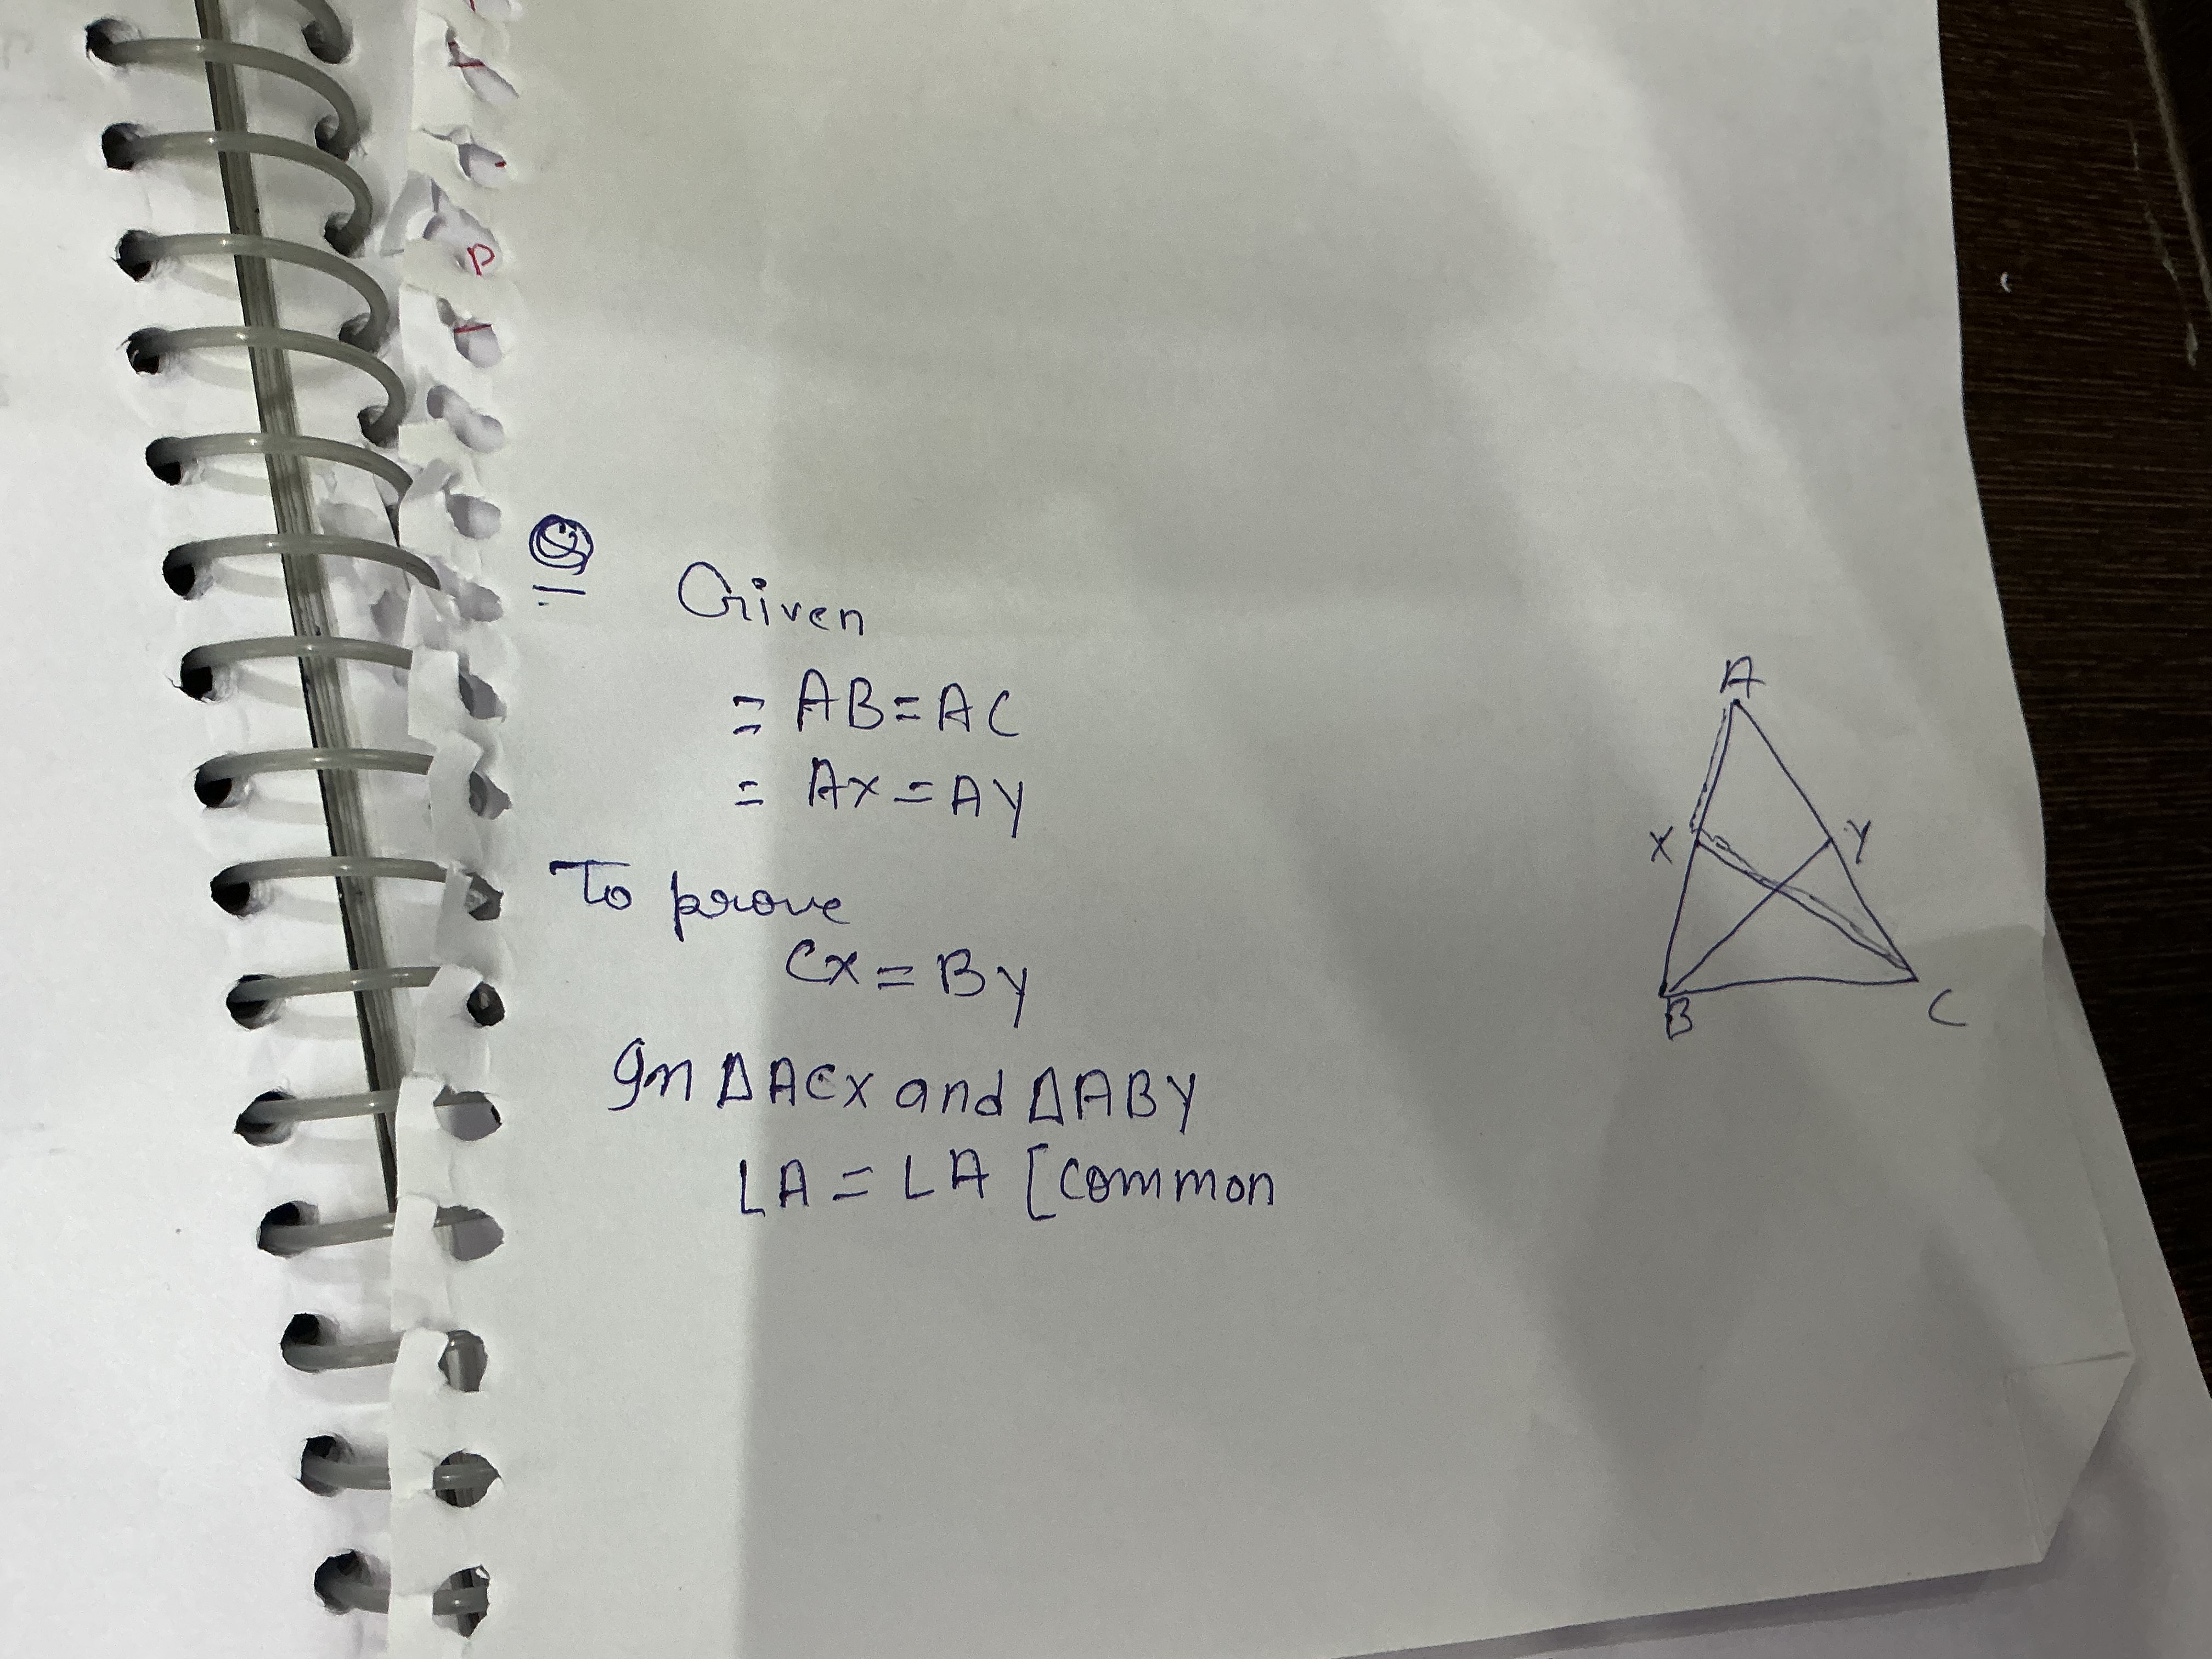 Q
Given
= AB = AC
= AX = AY
To prove
CX = BY
In ΔACX and ΔABY
LA = LA [common
A
X Y
B C
P